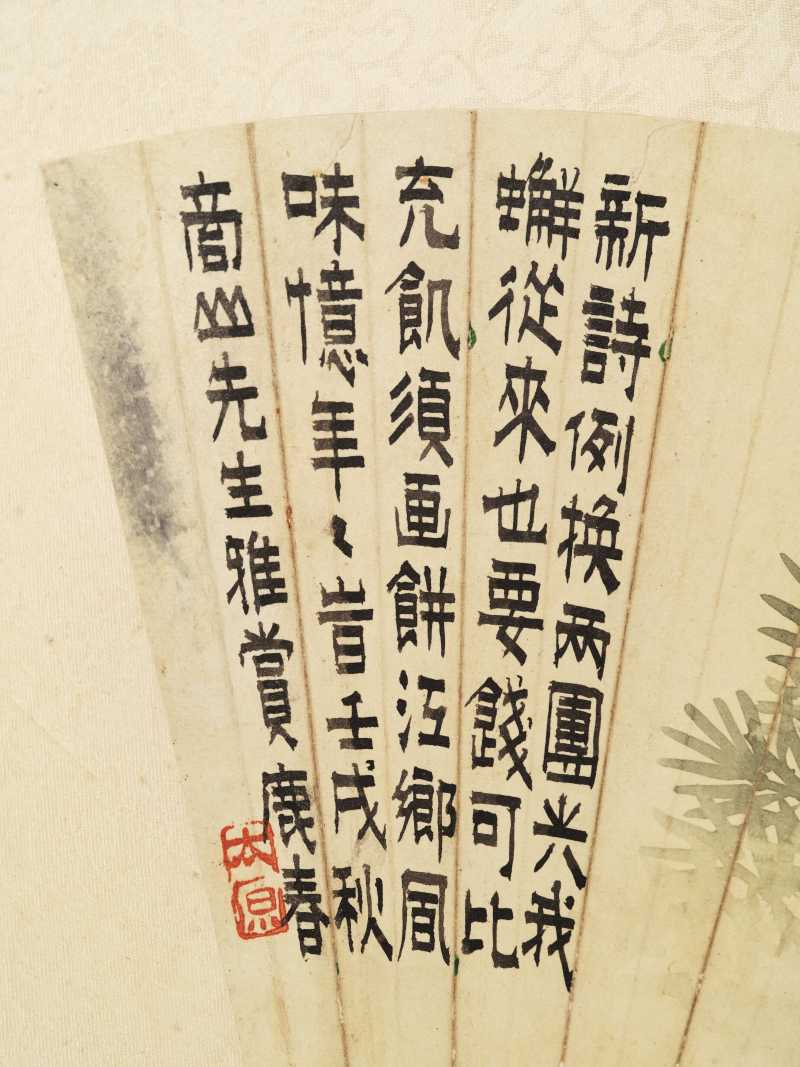 新詩例換兩團尖我
蠏從來也要錢可比
充飢須画餅江鄉風
味憶年〻旹壬戌秋
商山先生雅賞 鹿春
太原